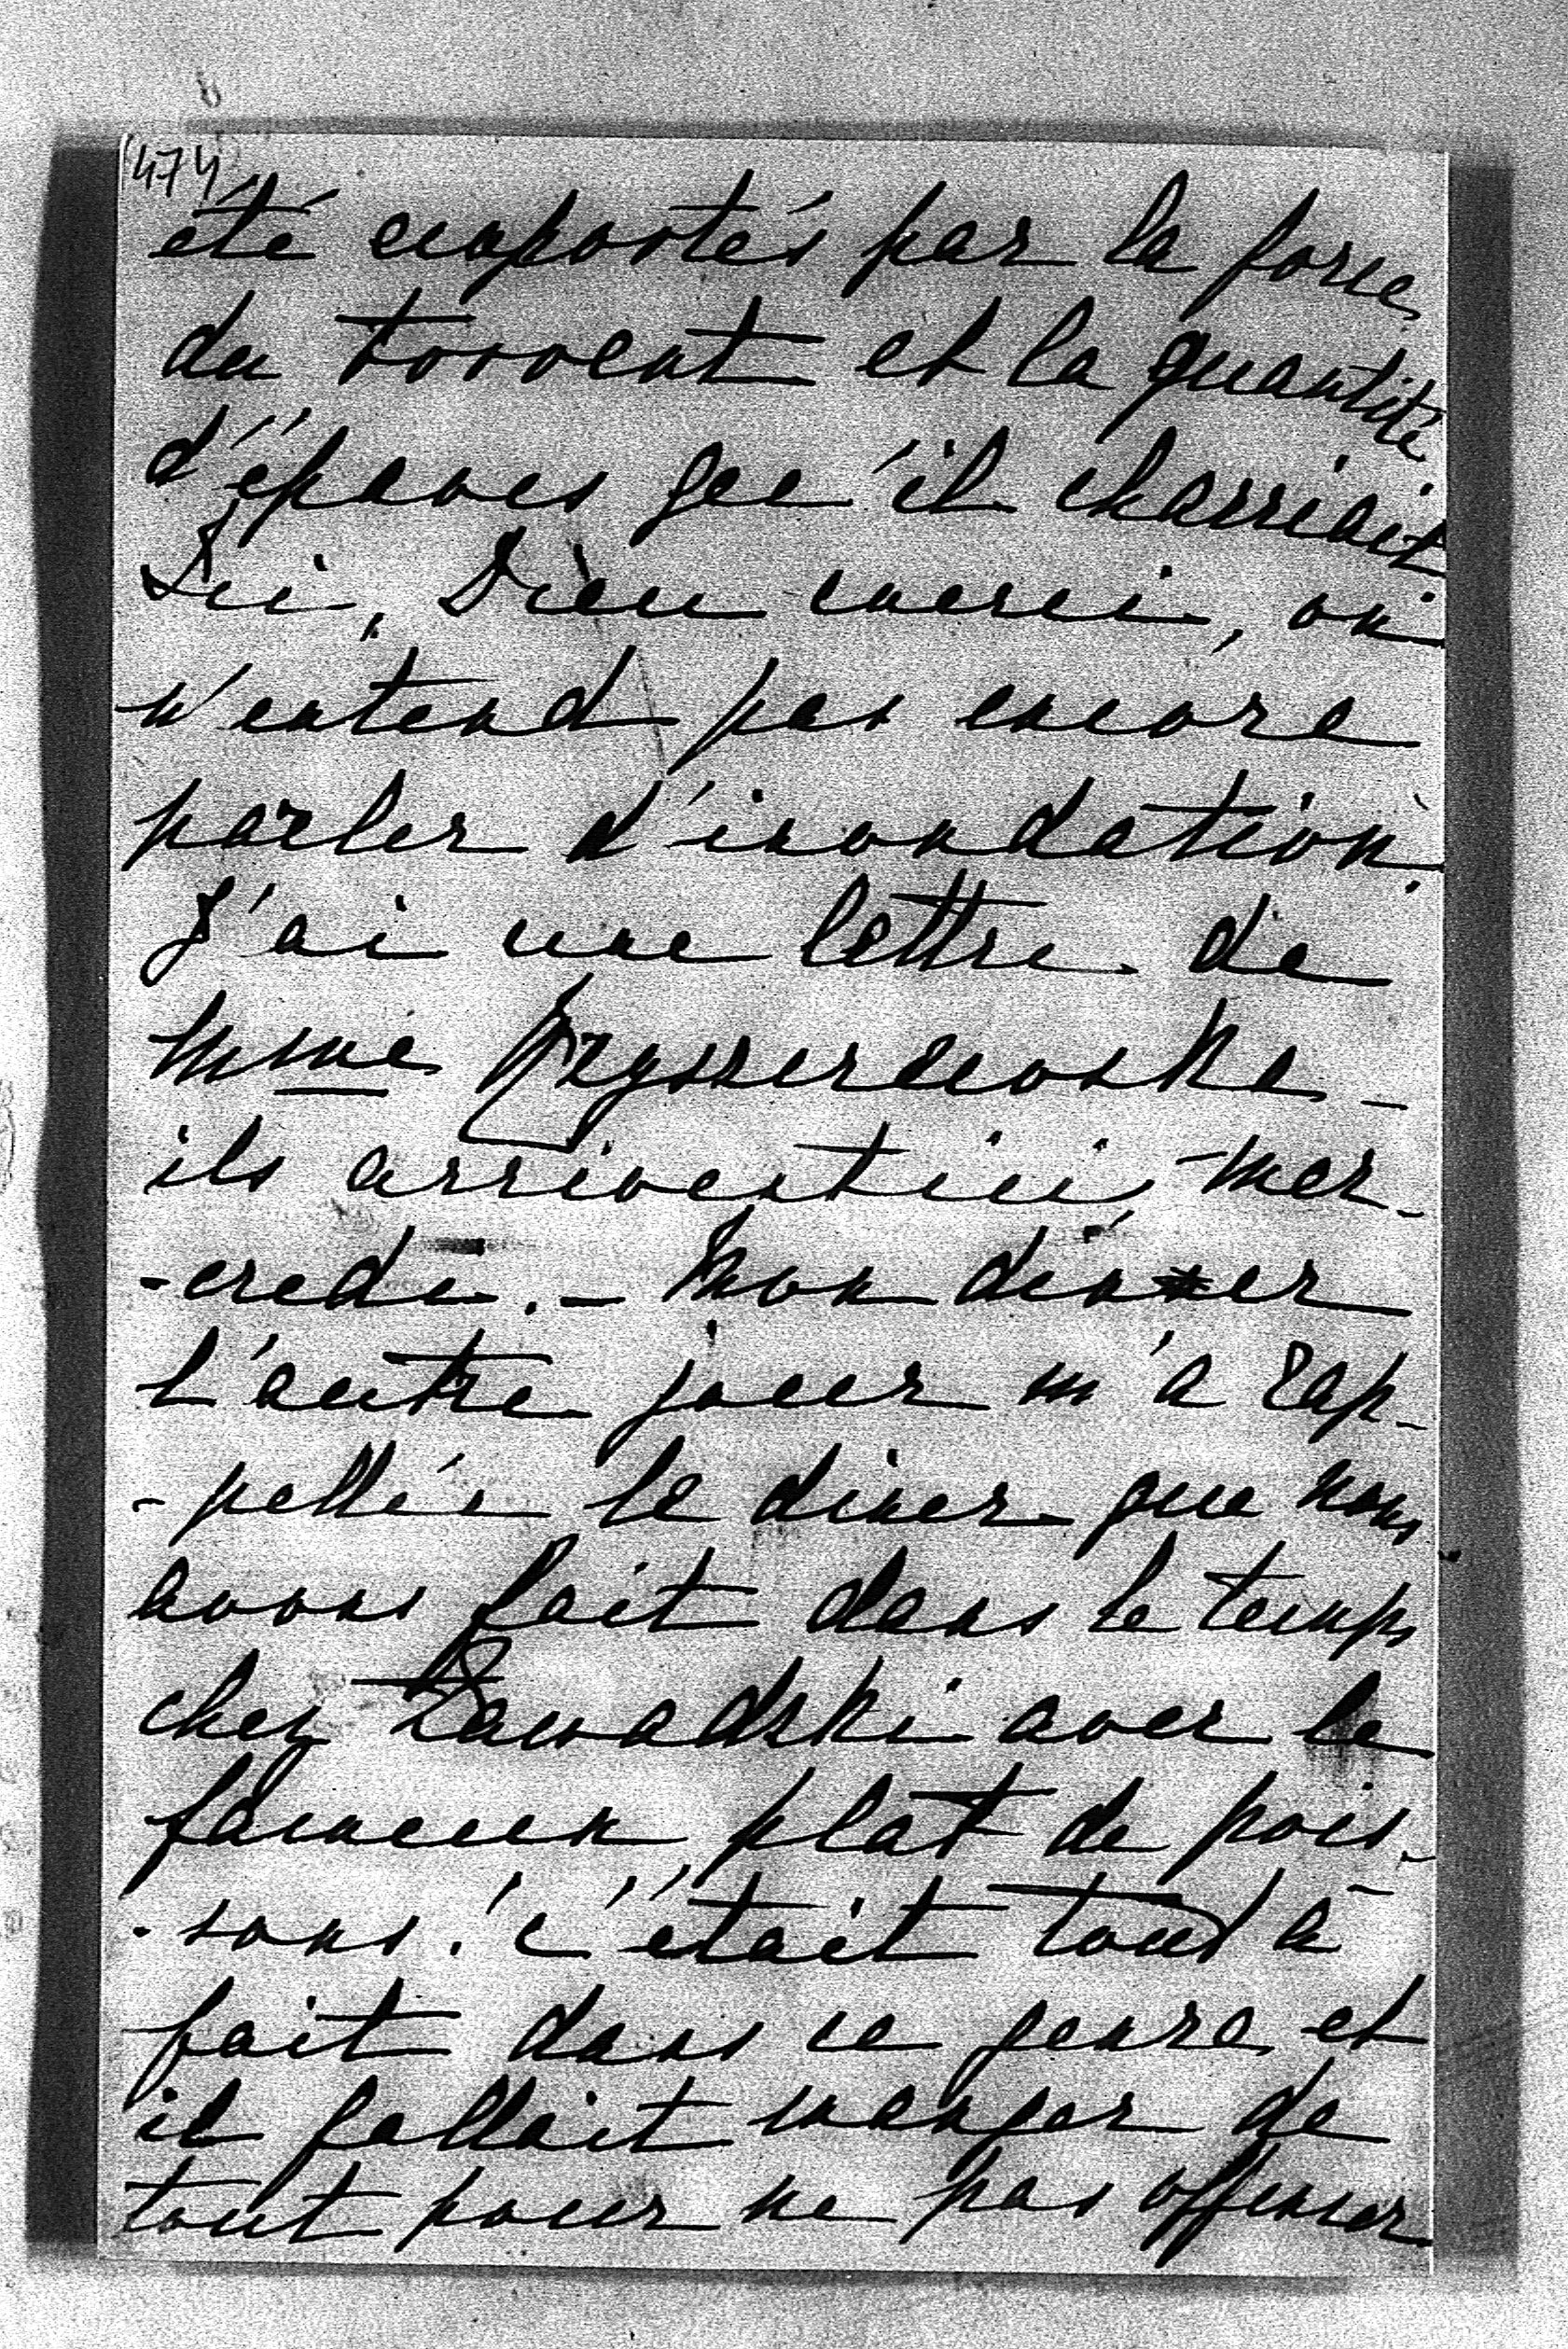 474
été emportés par la force
du torrent et la quantité
d'épaves qu'il charriait
Ici, Dieu merci, on
n'entend pas encore
parler d'inondation.
J'ai une lettre de
Mme
ils arrivent ici mer-
-credi. - Mon diner
l'autre jour m'a rap-
-pellé le diner que nous
avons fait dans le temps
chez Zawadski avec le
fameux plat de pois-
-sons! c'était tout à
fait dans ce genre et
il fallait manger de
tout pour ne pas offenser